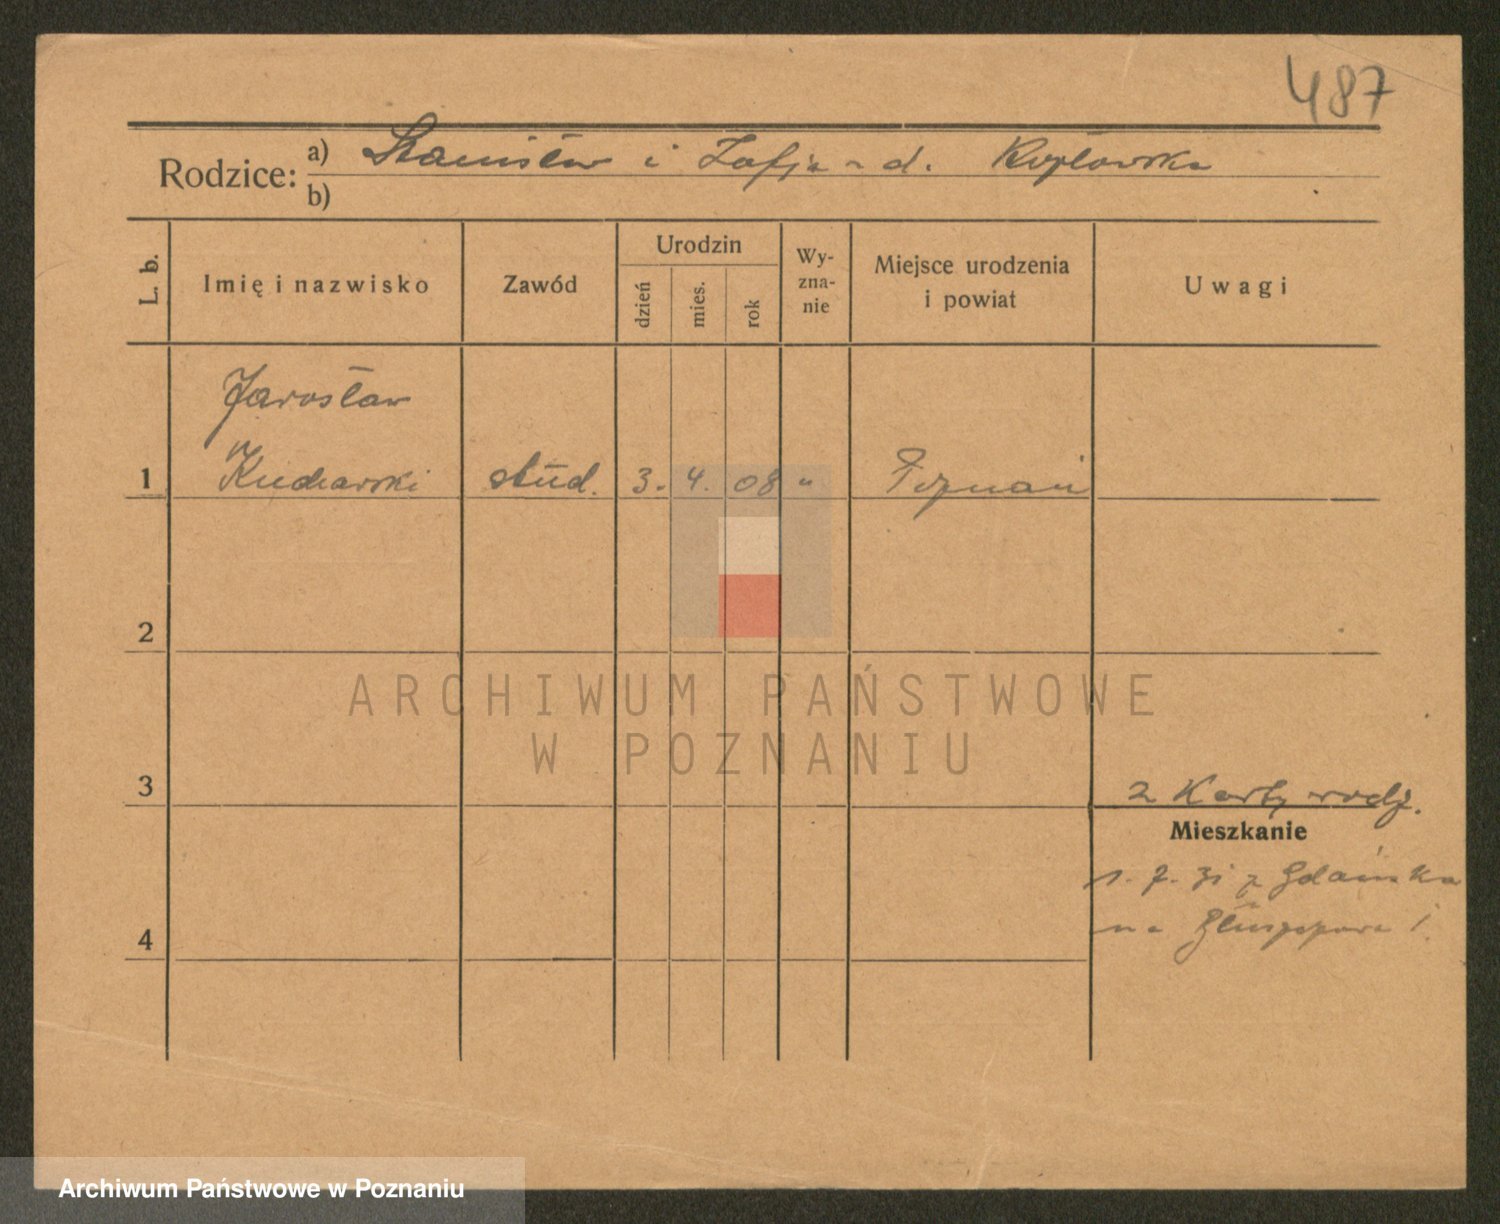 487
Rodzice: a) Stanisław i Zofja z d. Kozłowska
b)
L. b.
Imię i nazwisko
Zawód
Urodzin
dzień
mies.
rok
Wy-
zna-
nie
Miejsce urodzenia
i powiat
Uwagi
Jarosław
1 Kucharski stud. 3. 4. 08 " Poznań
2
ARCHIWUM PAŃSTWOWE
W POZNANIU
3
z Karty rodz.
Mieszkanie
1. 7. 31 z Gdańska
4
na
Archiwum Państwowe w Poznaniu